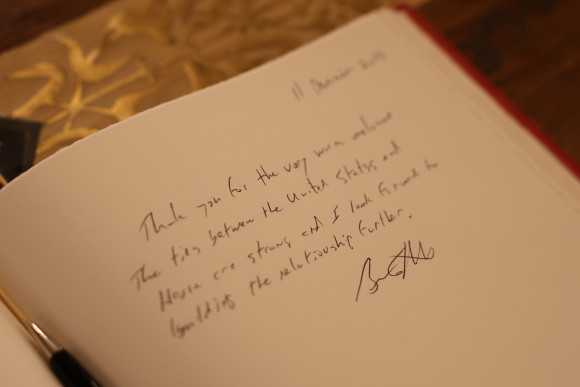 11 December
Thank you for the very warm welcome
The ties between the United States and
are strong and I look forward to
building the relationship further.